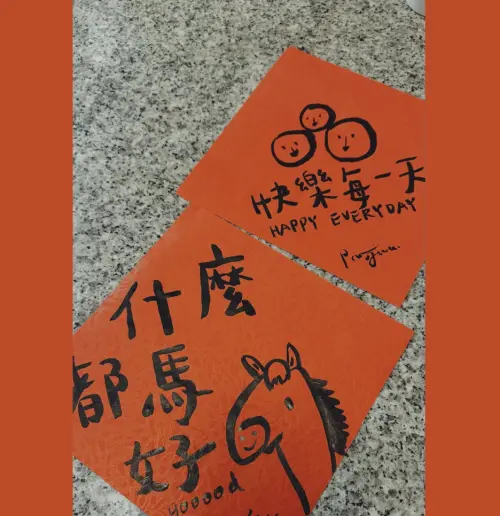 快樂每一天
HAPPY EVERYDAY
什麼
都馬
好
gooood